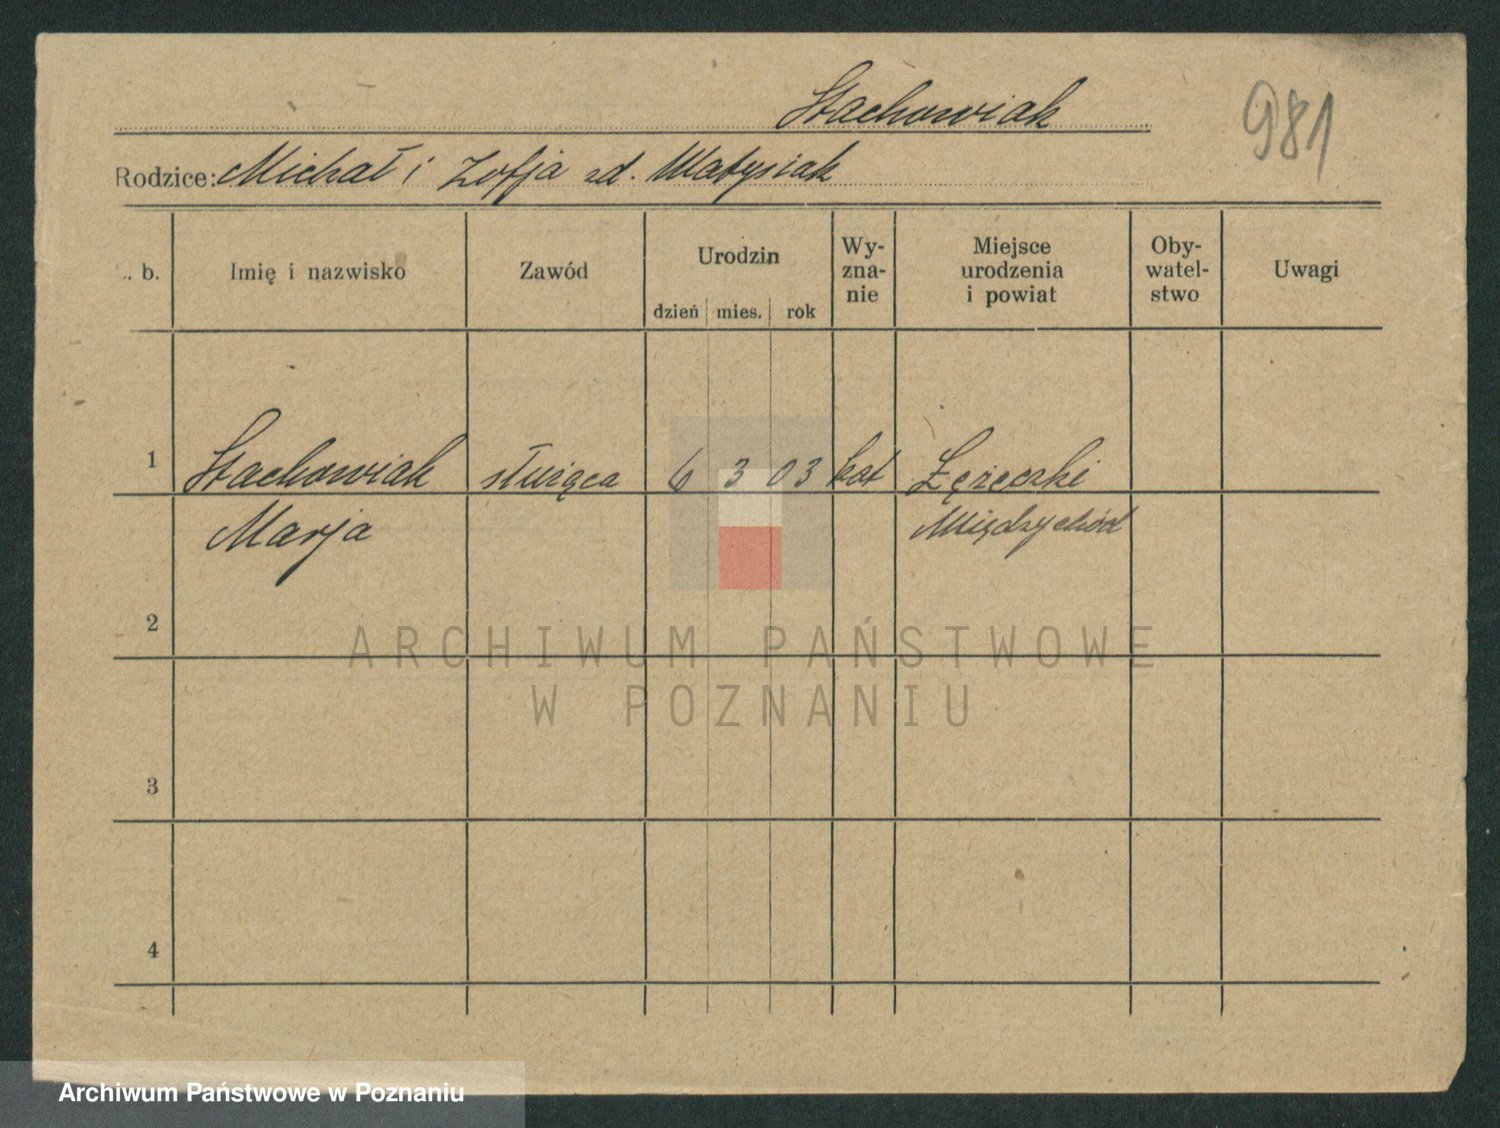 Stachowiak
981
Rodzice: Michał i Zofja zd. Matysiak
L. b. Imię i nazwisko Zawód Urodzin dzień mies. rok Wy-zna-nie Miejsce urodzenia i powiat Oby-watel-stwo Uwagi
1 Stachowiak służąca 6 3 03 kat Łężeczki
Marja Międzychód
2
ARCHIWUM PAŃSTWOWE
W POZNANIU
3
4
Archiwum Państwowe w Poznaniu